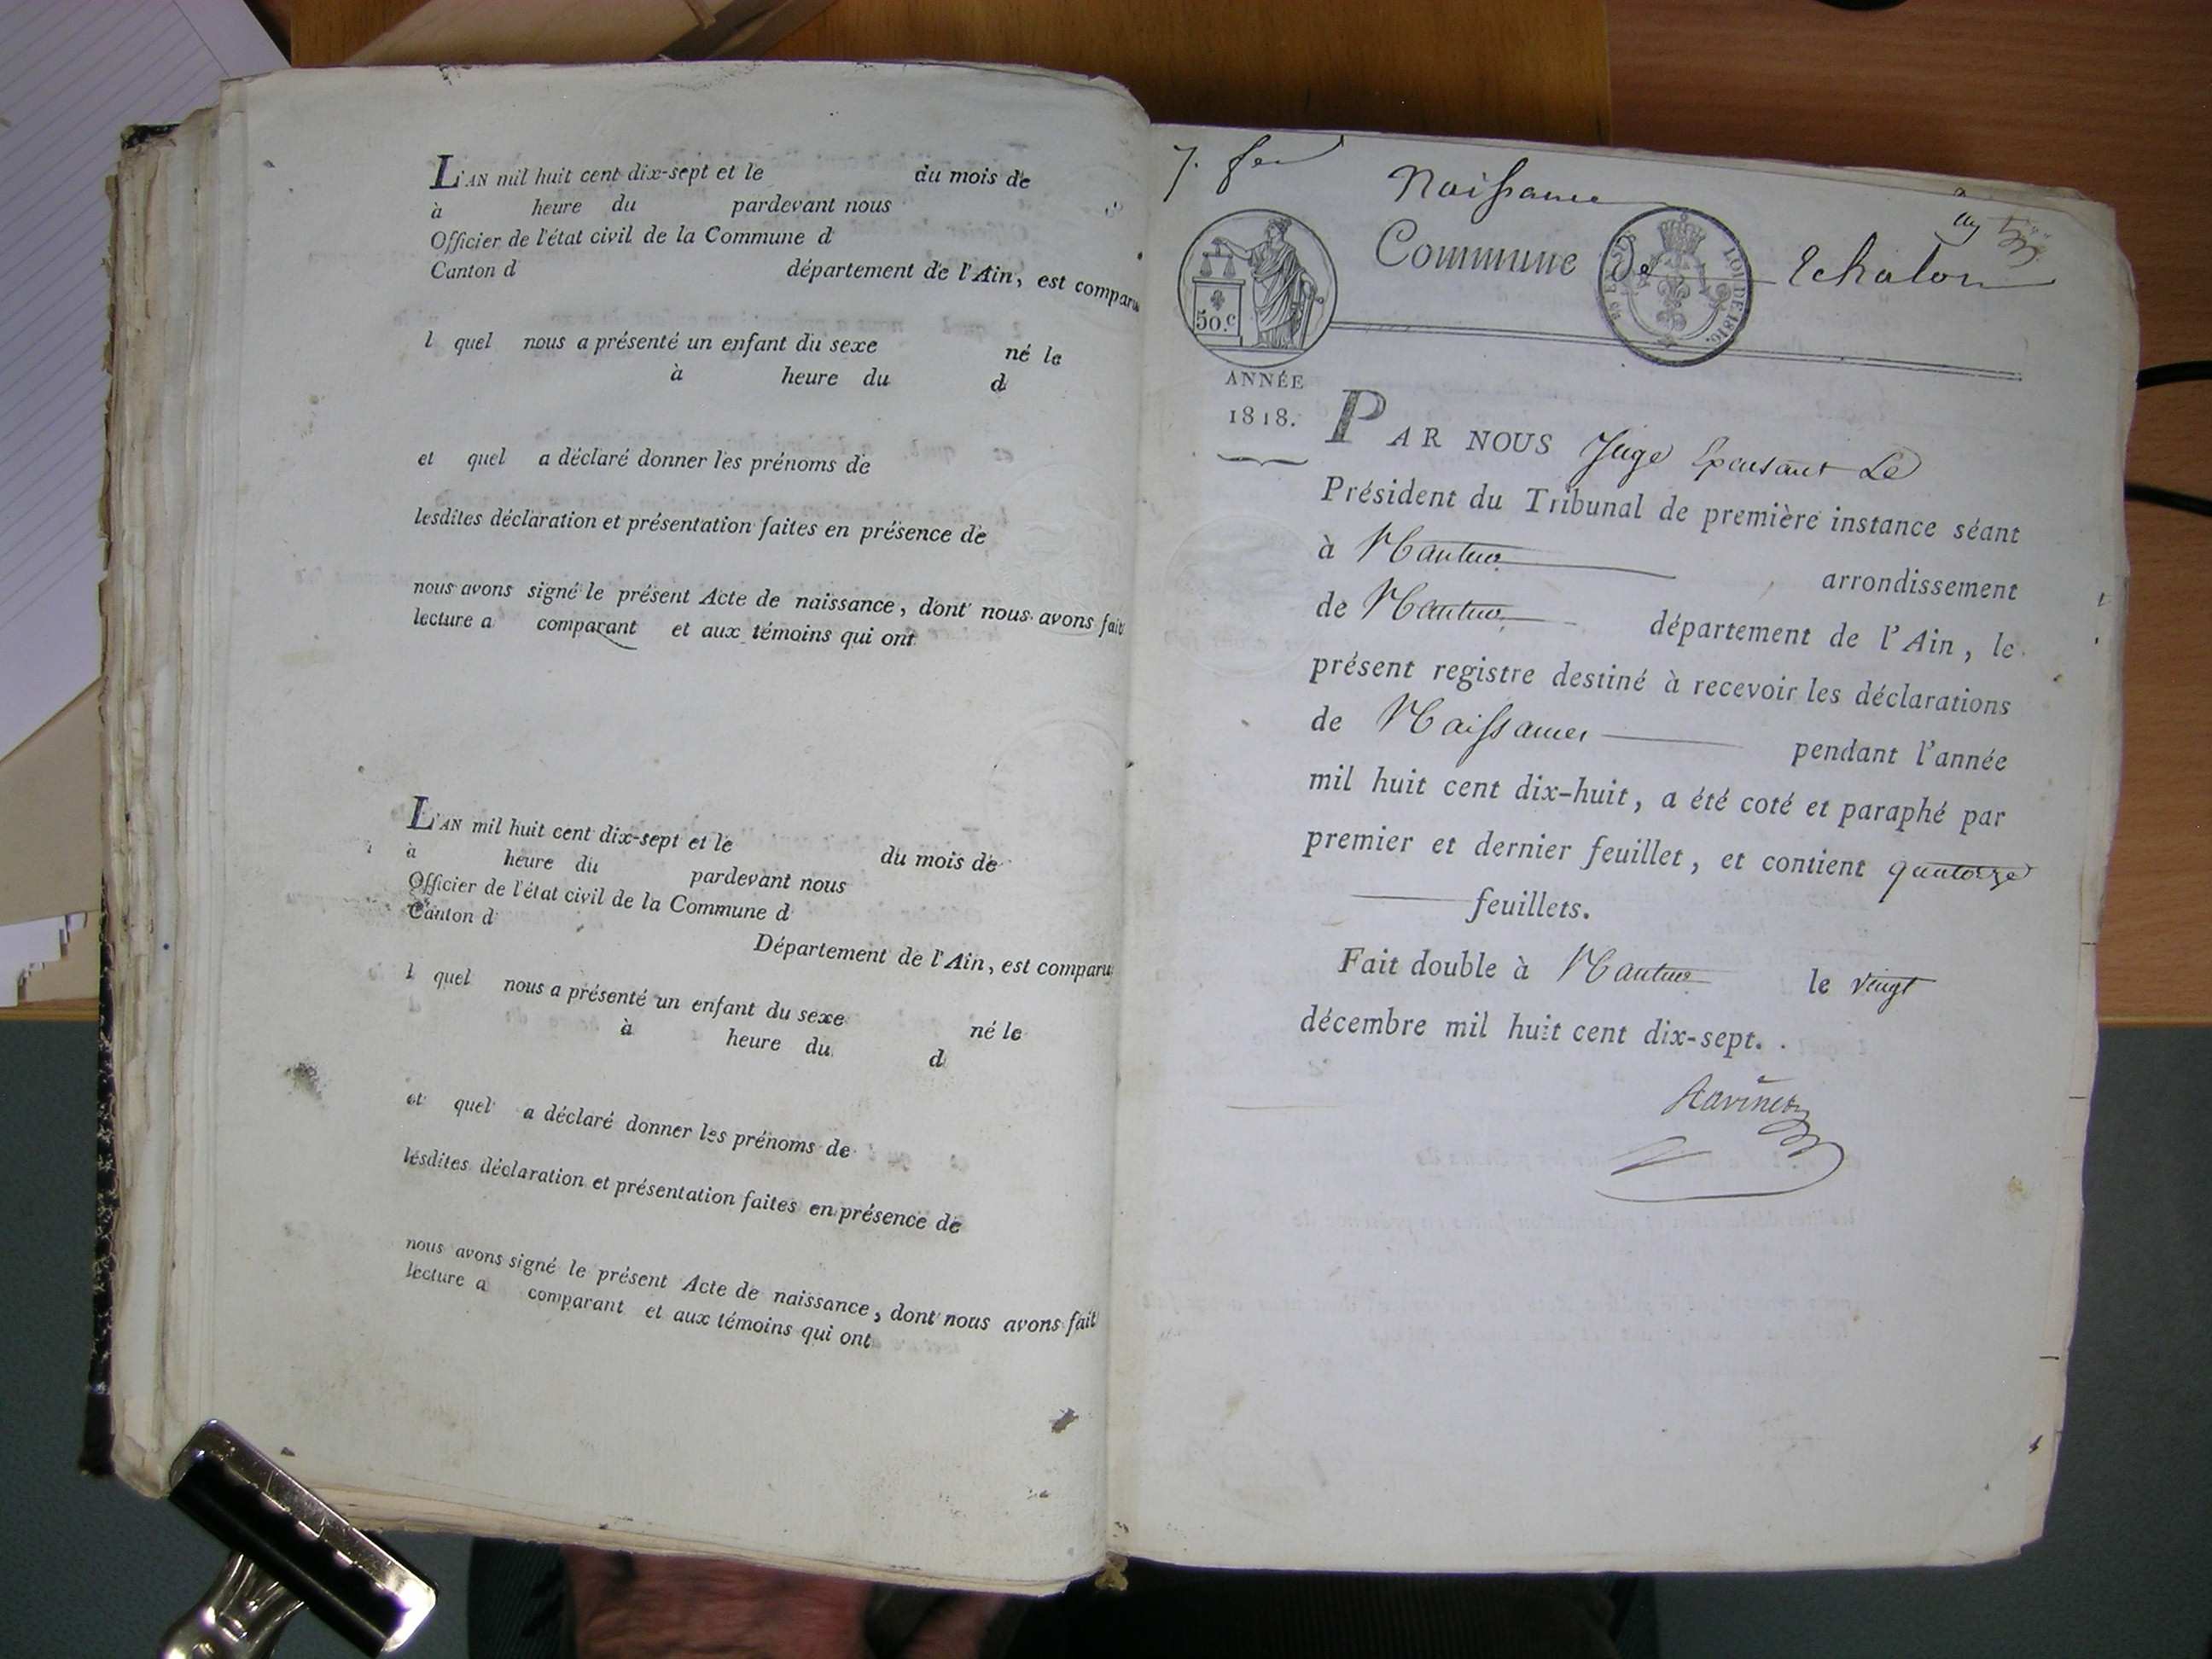 L'AN mil huit cent dix-sept et le du mois de
à heure du pardevant nous
Officier de l'état civil de la Commune d
Canton d département de l'Ain, est comparu
l quel nous a présenté un enfant du sexe né le
à heure du d
et quel a déclaré donner les prénoms de
lesdites déclaration et présentation faites en présence de
nous avons signé le présent Acte de naissance, dont nous avons fait
lecture a comparant et aux témoins qui ont
L'AN mil huit cent dix-sept et le du mois de
à heure du pardevant nous
Officier de l'état civil de la Commune d
Canton d
Département de l'Ain, est comparu
l quel nous a présenté un enfant du sexe né le
à heure du d
et quel a déclaré donner les prénoms de
lesdites déclaration et présentation faites en présence de
nous avons signé le présent Acte de naissance, dont nous avons fait
lecture a comparant et aux témoins qui ont
7.
Naissance
Commune de Echalon
50.c
LOI DE 1816.
ANNÉE
1818.
PAR NOUS Juge Le
Président du Tribunal de première instance séant
à Nantua arrondissement
de Nantua département de l'Ain, le
présent registre destiné à recevoir les déclarations
de Naissances pendant l'année
mil huit cent dix-huit, a été coté et paraphé par
premier et dernier feuillet, et contient quatorze
feuillets.
Fait double à Nantua le vingt
décembre mil huit cent dix-sept.